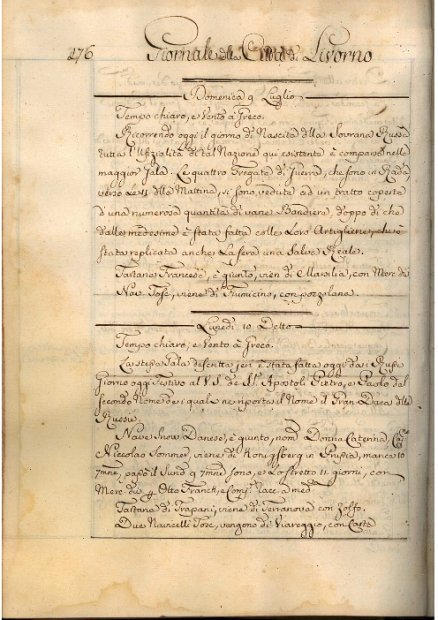 276 Giornale della Città di Livorno
Domenica 9 Luglio
Tempo chiaro, e Vento à Greco.
Ricorrendo oggi il giorno di Nascita della Sovrana Russa
tutta l'Ufizialità di tal Nazione qui esistente è comparsa nelle
maggior Gala. Le quattro Fregate di Guerra, che sono in Rada,
verso le 11 della Mattina, si sono vedute ad un tratto coperte
d'una numerosa quantità di varie Bandiere, doppo di che
dalle medesime è stata fatta colle Loro Artiglierie, ch'è
stata replicata anche la sera una Salve Reale.
Tartana Francese, è giunto, vien di Marsilia, con Merc di
Nav. Tosc, viene di Fiumicino, con pozzolana.
Lunedì 10 Detto
Tempo chiaro, e Vento à Greco.
La stessa Gala descritta jeri è stata fatta oggi dai Russi
Giorno oggi festivo al V.S. de SS. Apostoli Pietro, e Paolo dal
secondo Nome dei quale ne porta il Nome il Gran Duca delle
Russie.
Nave Snow Danese, è giunto, nom Donna Caterina, Cap
Niccolao Sommer, viene di Konigsberg in Prussia, manca 10
7mne, passò il Sund 9 7mne sono, e Lo stretto 11 giorni, con
Merc div p Otto Franck, e Comp. racc a med
Tartana di Trapani, viene di Terranova con Zolfo.
Due Navicelli Tosc, vengono di Viareggio, con Carta